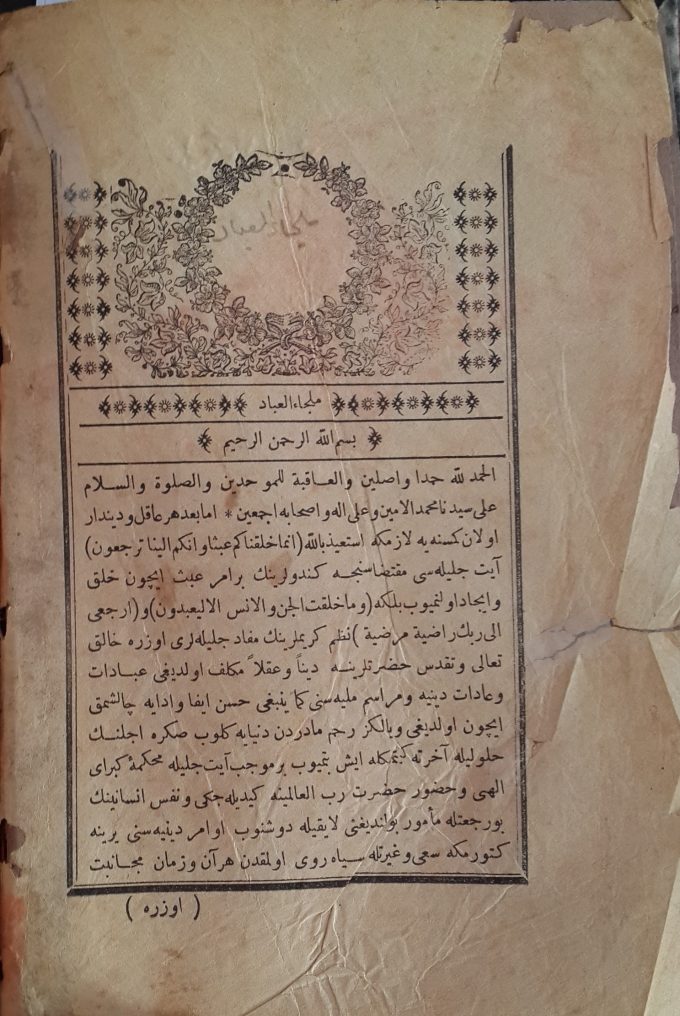 ملجاء العباد
ملجاء العباد
بسم الله الرحمن الرحيم
الحمد لله حمدا واصلين والعاقبة للموحدين والصلوة والسلام
على سيدنا محمد الامين وعلى اله واصحابه اجمعين * اما بعد هر عاقل و ديندار
اولان كسنه يه لازمكه استعيذ بالله (انما خلقناكم عبثا وانكم الينا ترجعون)
آيت جليله سى مقتضاسنجه كندولرينك برامر عبث ايچون خلق
وايجاد اولنميوب بلكه (وما خلقت الجن والانس الا ليعبدون) و (ارجعى
الى ربك راضية مرضية) نظم كريملرينك مفاد جليله لرى اوزره خالق
تعالى وتقدس حضرتلرينه ديناً وعقلاً مكلف اولديغى عبادات
وعادات دينيه ومراسم مليه سنى كما ينبغى حسن ايفا وادايه چالشمق
ايچون اولديغى ويالكز رحم مادردن دنيايه كلوب صكره اجلنك
حلوليله آخرته كيتمكله ايش بتميوب بر موجب آيت جليله محكمۀ كبراى
الهى وحضور حضرت رب العالمينه كيديله جكى ونفس انسانينك
بورجعتله مأمور بولنديغنى لايقيله دوشنوب اوامر دينيه سنى يرينه
كتورمكه سعى وغيرتله سياه روى اولمقدن هر آن وزمان مجانبت
( اوزره )